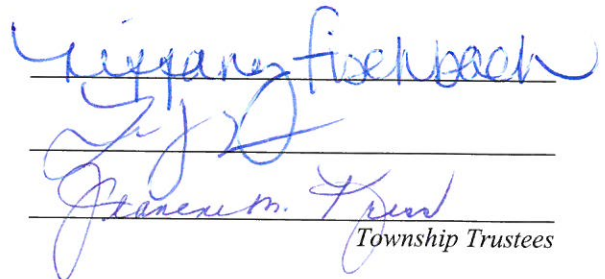 Tiffany Fischbach
Jeanene M. Kress
Township Trustees